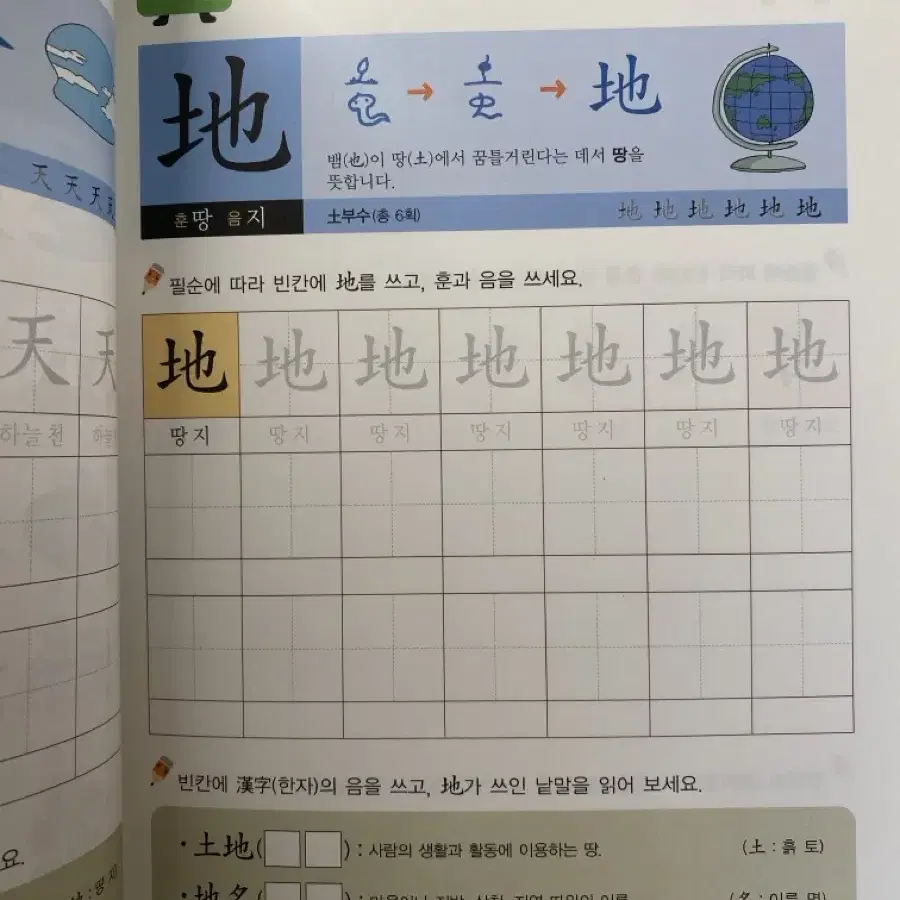 天 天 天
天 天
하늘 천 하늘
요.
땅 지
地
뱀(也)이 땅(土)에서 꿈틀거린다는 데서 땅을
뜻합니다.
훈 땅 음 지
土부수(총 6획)
地 地 地 地 地 地
필순에 따라 빈칸에 地를 쓰고, 훈과 음을 쓰세요.
地 地 地 地 地 地 地
땅 지 땅 지 땅 지 땅 지 땅 지 땅 지 땅 지
빈칸에 漢字(한자)의 음을 쓰고, 地가 쓰인 낱말을 읽어 보세요.
· 土地( ) : 사람의 생활과 활동에 이용하는 땅. (土 : 흙 토)
· 地名( ) : (名 : 이름 명)